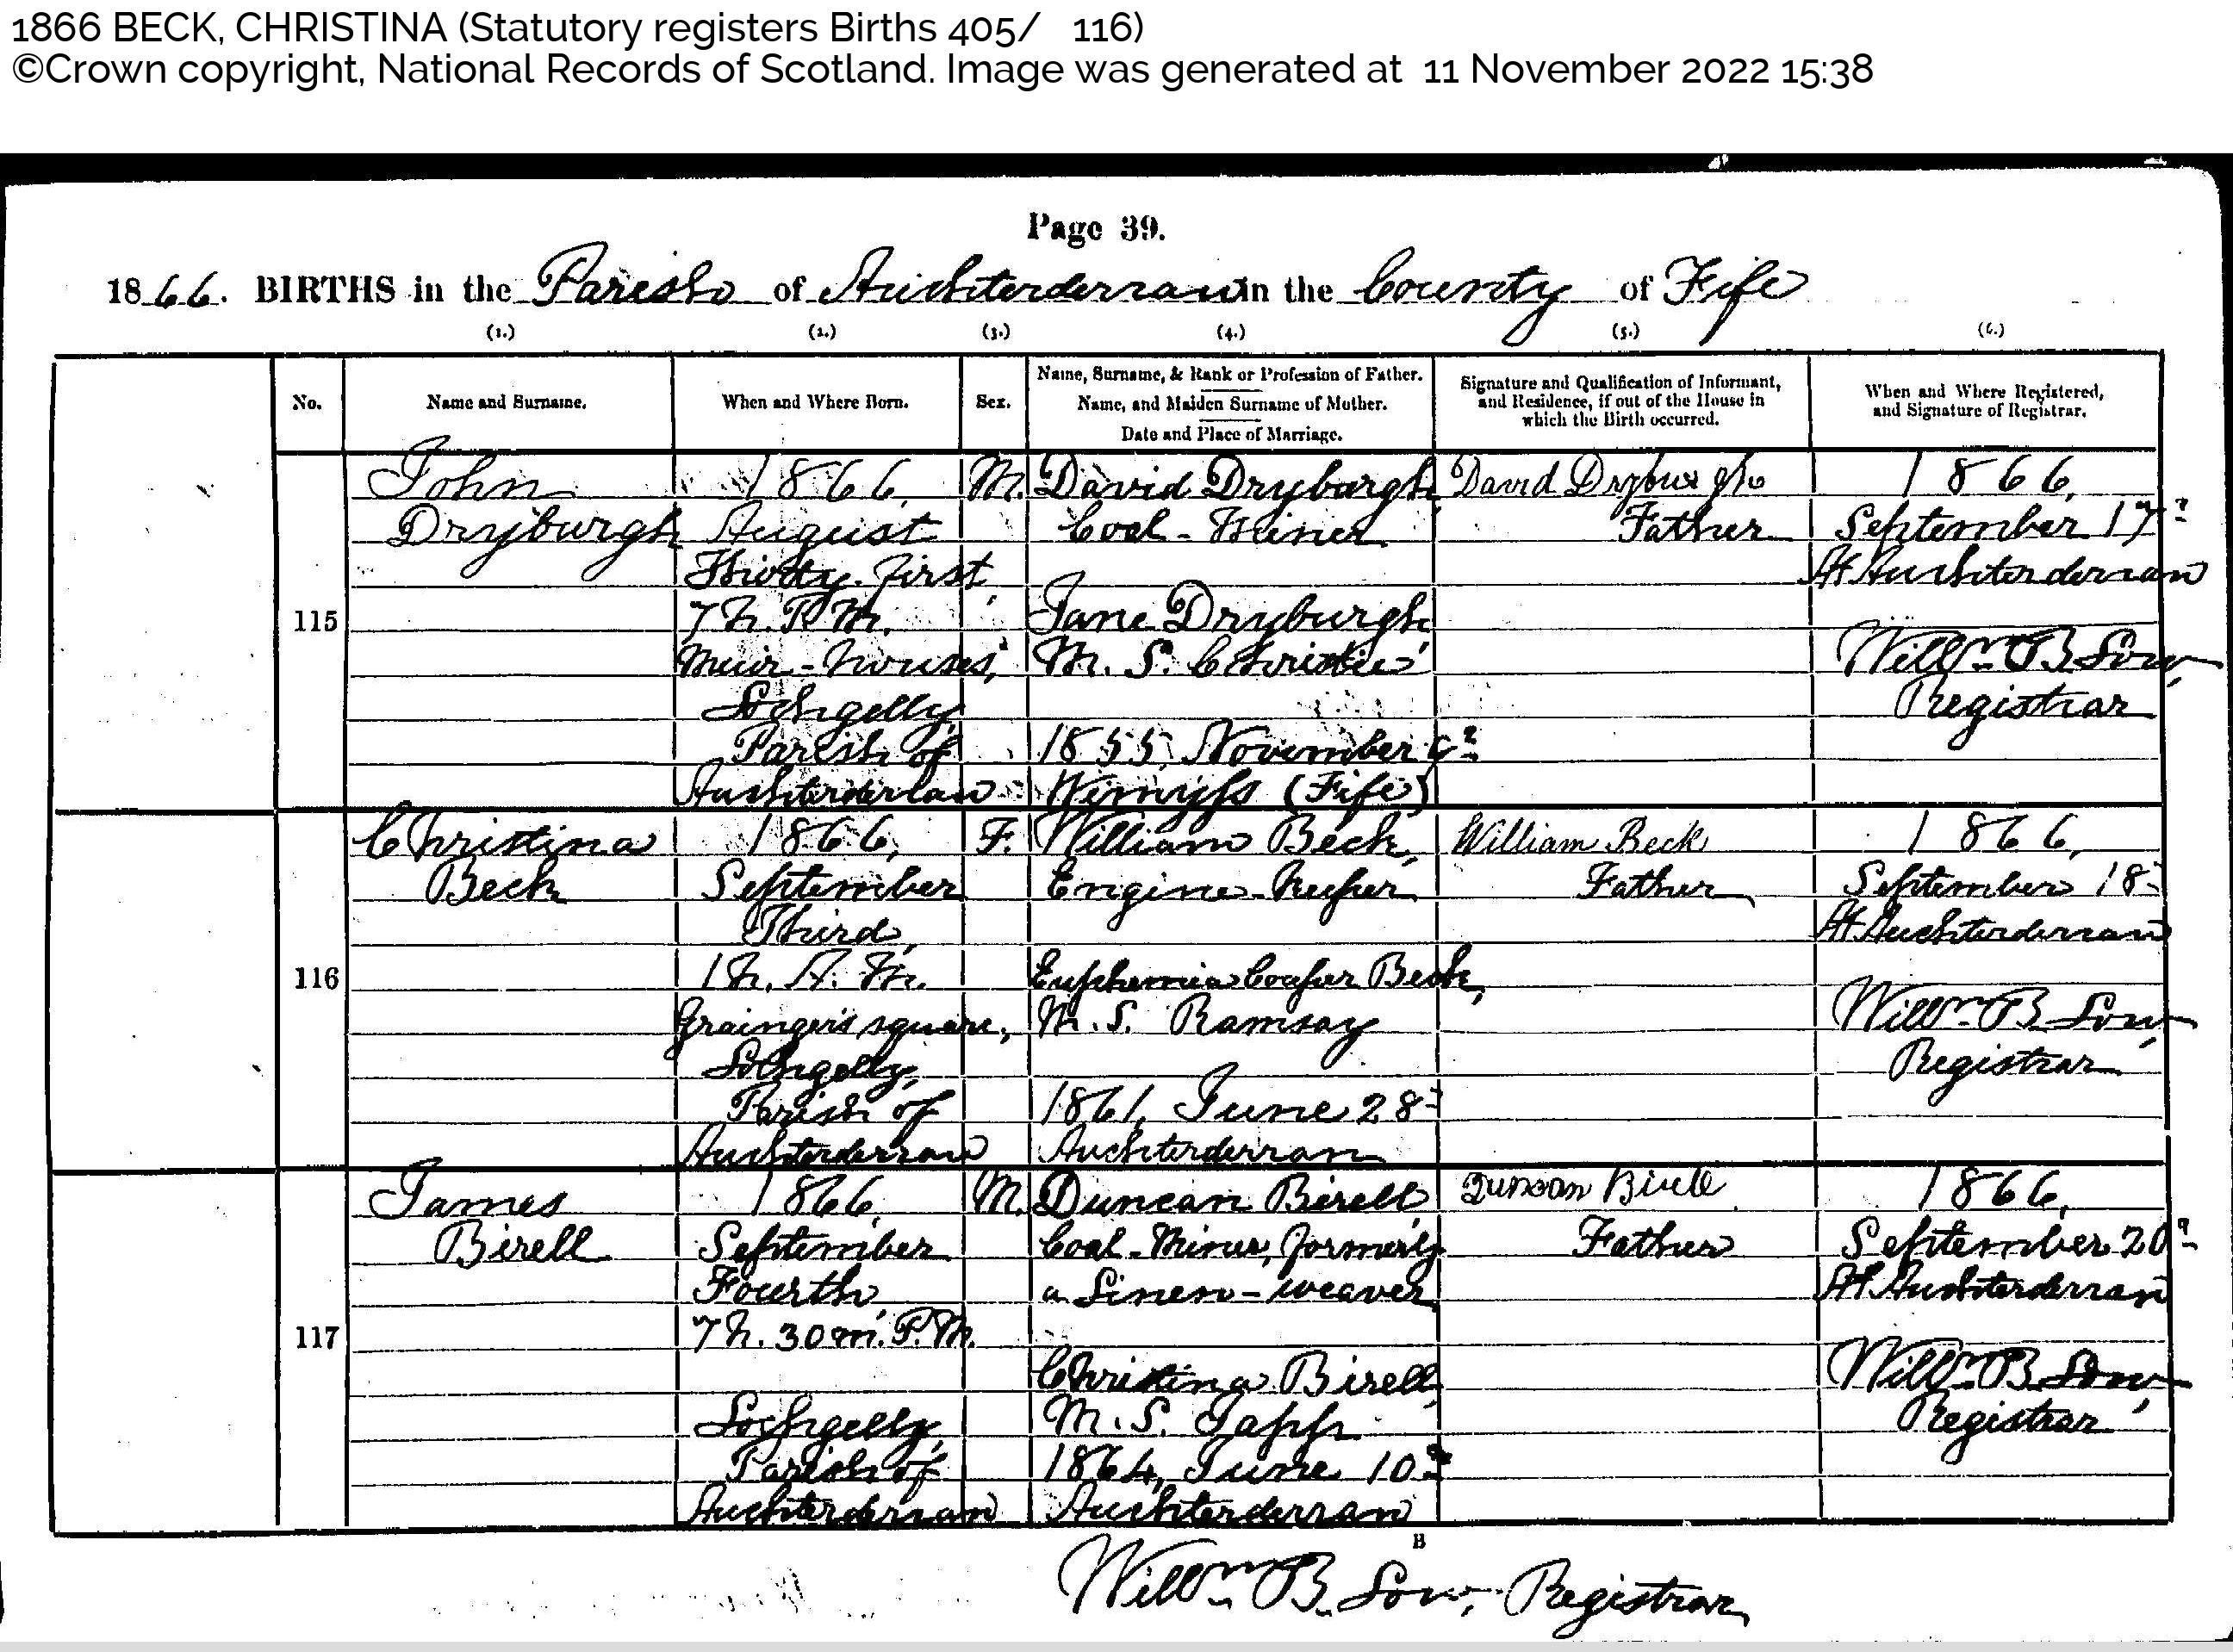 1866 BECK, CHRISTINA (Statutory registers Births 405/ 116)
©Crown copyright, National Records of Scotland. Image was generated at 11 November 2022 15:38
Page 39.
1866. BIRTHS in the Parish of Auchterderran in the County of Fife
(1.) (2.) (3.) (4.) (5.) (6.)
No.
Name and Surname.
When and Where Born.
Sex.
Name, Surname, & Rank or Profession of Father.
Name, and Maiden Surname of Mother.
Date and Place of Marriage.
Signature and Qualification of Informant,
and Residence, if out of the House in
which the Birth occurred.
When and Where Registered,
and Signature of Registrar.
115
John
Dryburgh
1866,
August
Thirty-first,
7h. P.M.
Muir-houses,
Lochgelly,
Parish of
Auchterderran
M.
David Dryburgh,
Coal-Miner
Jane Dryburgh
M.S. Christie
1855, November 9th
Wemyss (Fife)
David Dryburgh
Father
1866,
September 17th
At Auchterderran
Willm. B. Low,
Registrar
116
Christina
Beck
1866,
September
Third,
1h. A.M.
Grainger's square,
Lochgelly,
Parish of
Auchterderran
F.
William Beck,
Engine-Keeper
Euphemia Cooper Beck,
M.S. Ramsay
1861, June 28th
Auchterderran
William Beck
Father
1866,
September 18th
At Auchterderran
Willm. B. Low,
Registrar
117
James
Birell
1866,
September
Fourth,
7h. 30m. P.M.
Lochgelly,
Parish of
Auchterderran
M.
Duncan Birell,
Coal-Miner, formerly
a Linen-weaver
Christina Birell,
M.S. Tapp
1864, June 10th
Auchterderran
Duncan Birell
Father
1866,
September 20th
At Auchterderran
Willm. B. Low,
Registrar
B
Willm. B. Low, Registrar